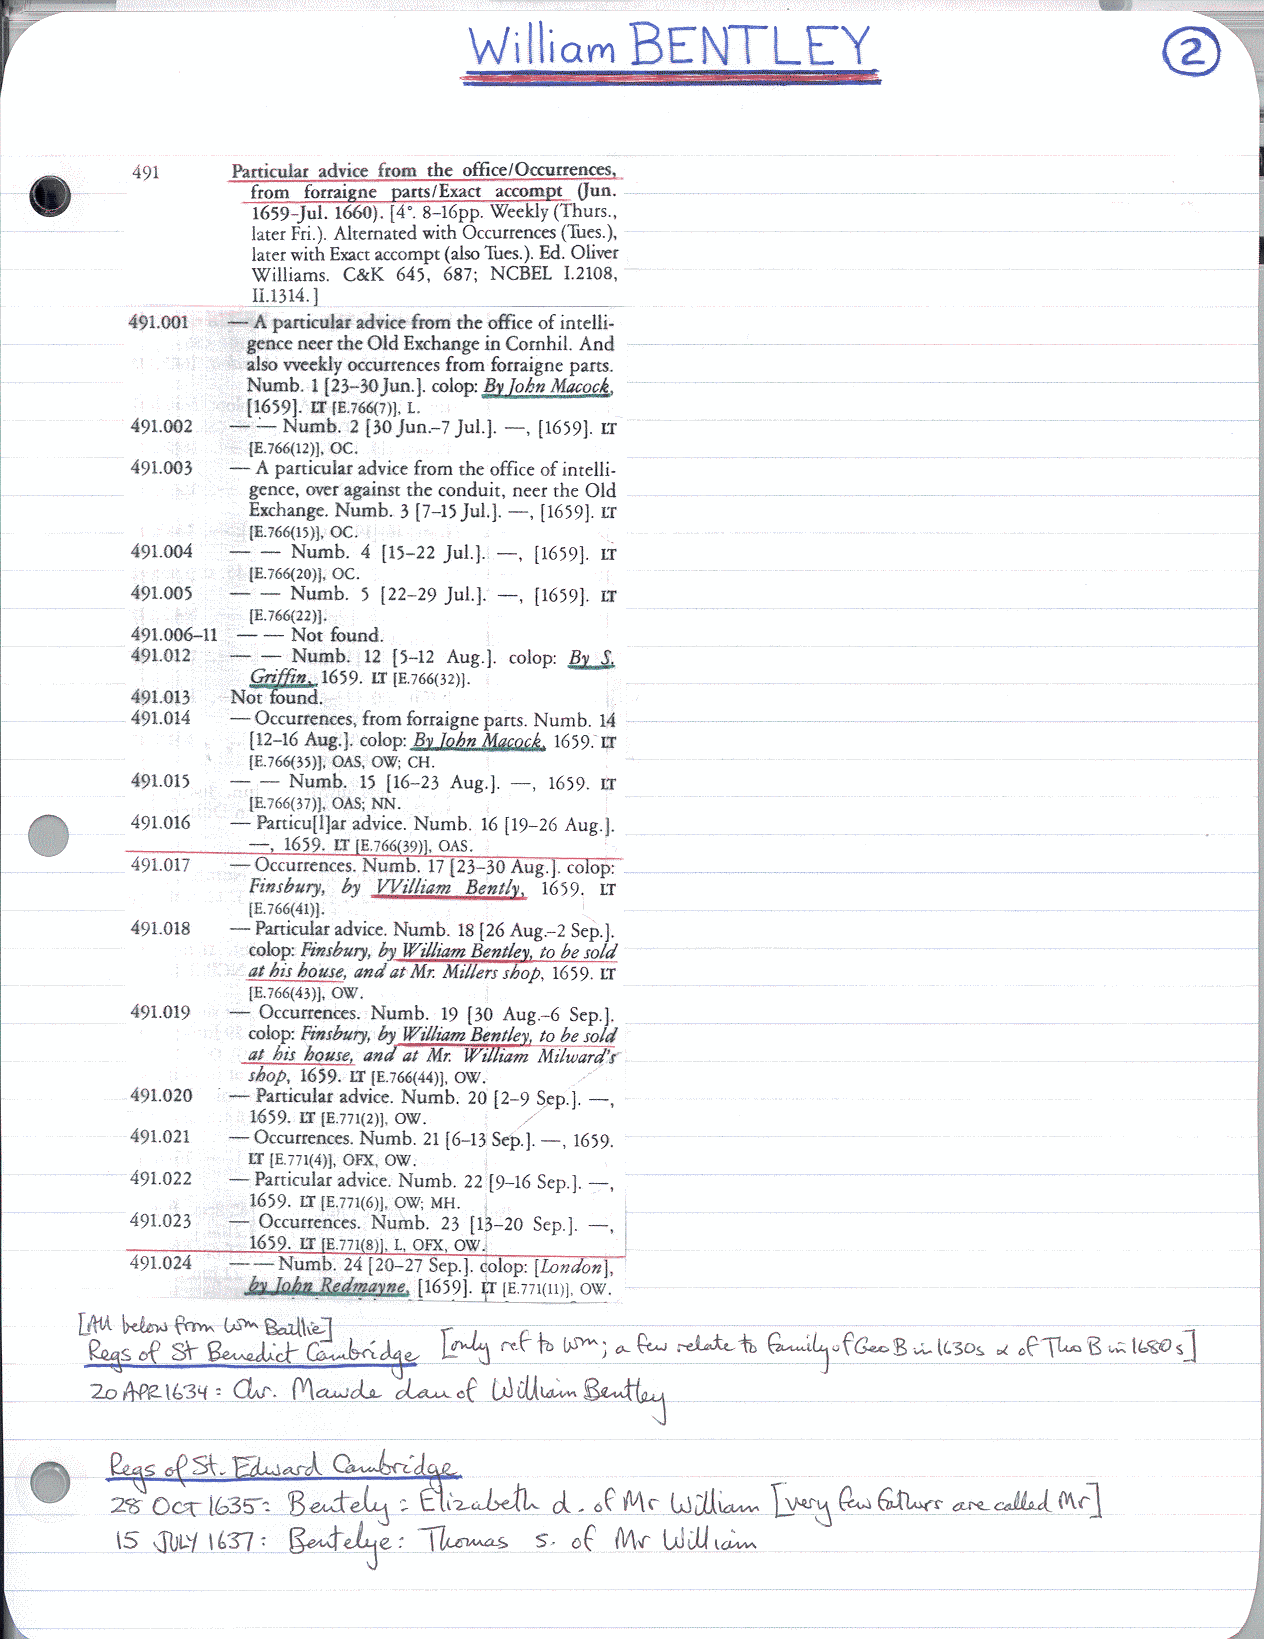 William BENTLEY
2
491 Particular advice from the office/Occurrences,
from forraigne parts/Exact accompt (Jun.
1659–Jul. 1660). [4°. 8–16pp. Weekly (Thurs.,
later Fri.). Alternated with Occurrences (Tues.),
later with Exact accompt (also Tues.). Ed. Oliver
Williams. C&K 645, 687; NCBEL I.2108,
II.1314.]
491.001 — A particular advice from the office of intelli-
gence neer the Old Exchange in Cornhil. And
also vveekly occurrences from forraigne parts.
Numb. 1 [23–30 Jun.]. colop: By John Macock,
[1659]. LT [E.766(7)], L.
491.002 — — Numb. 2 [30 Jun.–7 Jul.]. —, [1659]. LT
[E.766(12)], OC.
491.003 — A particular advice from the office of intelli-
gence, over against the conduit, neer the Old
Exchange. Numb. 3 [7–15 Jul.]. —, [1659]. LT
[E.766(15)], OC.
491.004 — — Numb. 4 [15–22 Jul.]. —, [1659]. LT
[E.766(20)], OC.
491.005 — — Numb. 5 [22–29 Jul.]. —, [1659]. LT
[E.766(22)].
491.006–11 — — Not found.
491.012 — — Numb. 12 [5–12 Aug.]. colop: By S.
Griffin, 1659. LT [E.766(32)].
491.013 Not found.
491.014 — Occurrences, from forraigne parts. Numb. 14
[12–16 Aug.]. colop: By John Macock, 1659. LT
[E.766(35)], OAS, OW; CH.
491.015 — — Numb. 15 [16–23 Aug.]. —, 1659. LT
[E.766(37)], OAS; NN.
491.016 — Particu[l]ar advice. Numb. 16 [19–26 Aug.].
—, 1659. LT [E.766(39)], OAS.
491.017 — Occurrences. Numb. 17 [23–30 Aug.]. colop:
Finsbury, by VVilliam Bently, 1659. LT
[E.766(41)].
491.018 — Particular advice. Numb. 18 [26 Aug.–2 Sep.].
colop: Finsbury, by William Bentley, to be sold
at his house, and at Mr. Millers shop, 1659. LT
[E.766(43)], OW.
491.019 — Occurrences. Numb. 19 [30 Aug.–6 Sep.].
colop: Finsbury, by William Bentley, to be sold
at his house, and at Mr. William Milward's
shop, 1659. LT [E.766(44)], OW.
491.020 — Particular advice. Numb. 20 [2–9 Sep.]. —,
1659. LT [E.771(2)], OW.
491.021 — Occurrences. Numb. 21 [6–13 Sep.]. —, 1659.
LT [E.771(4)], OFX, OW.
491.022 — Particular advice. Numb. 22 [9–16 Sep.]. —,
1659. LT [E.771(6)], OW; MH.
491.023 — Occurrences. Numb. 23 [13–20 Sep.]. —,
1659. LT [E.771(8)], L, OFX, OW.
491.024 — — Numb. 24 [20–27 Sep.]. colop: [London],
by John Redmayne, [1659]. LT [E.771(11)], OW.
[All below from Wm Baillie]
Regs of St Benedict Cambridge [only ref to Wm; a few relate to family of Geo B in 1630s & of Tho B in 1680s]
20 APR 1634: Chr. Mawde dau of William Bentley
Regs of St. Edward Cambridge
28 OCT 1635: Bentely: Elizabeth d. of Mr William [very few fathers are called Mr]
15 JULY 1637: Bentelye: Thomas s. of Mr William